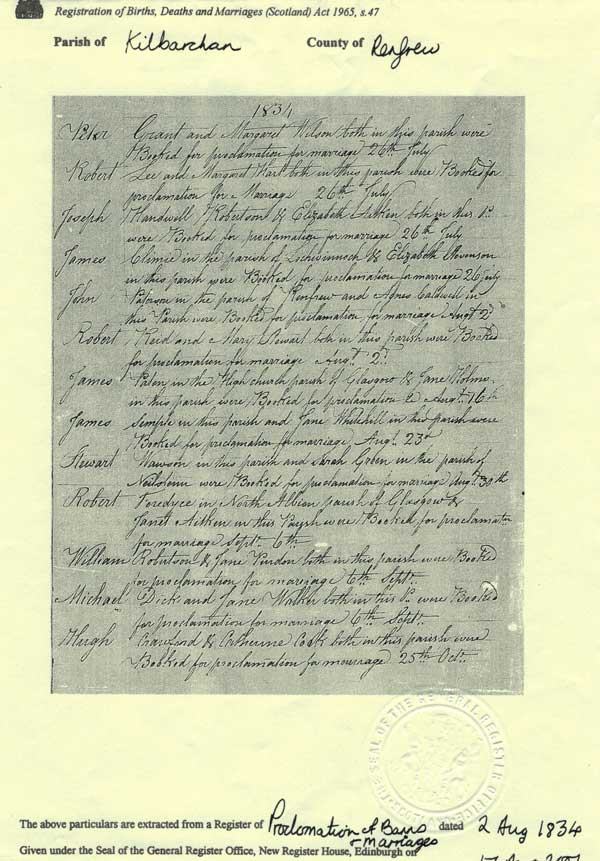 Registration of Births, Deaths and Marriages (Scotland) Act 1965, s.47
Parish of Kilbarchan County of Renfrew
1834
Peter Grant and Margaret Wilson both in this parish were
Booked for proclamation for marriage 26th July
Robert Lee and Margaret Hart both in this parish were Booked for
proclamation for Marriage 26th July
Joseph Robertson & Elizabeth Aitken both in this P.
were Booked for proclamation for marriage 26th July
James Climie in the parish of Lochwinnoch & Elizabeth Stevenson
in this parish were Booked for proclamation for marriage 26 July
John Paterson in the parish of Renfrew and Agnes Caldwell in
this Parish were Booked for proclamation for marriage Augt 2d
Robert Reid and Mary Stewart both in this parish were Booked
for proclamation for marriage Augt. 2d
James Paton in the High church parish of Glasgow & Jane Holms
in this parish were Booked for proclamation &c Augt. 16th
James Semple in this parish and Jane Whitehill in this parish were
Booked for proclamation for marriage Augt. 23d
Stewart in this parish and Sarah Green in the parish of
were Booked for proclamation for marriage Augt 30th
Robert in North Albion parish Glasgow &
Janet Aitken in this Parish were Booked for proclamation
for marriage Septr. 6th
William Robertson & Jane both in this parish were Booked
for proclamation for marriage 6th Septr.
Michael Dick and Jane Walker both in this P. were Booked
for proclamation for marriage 6th Septr.
Hugh Crawford & Catherine Cook both in this parish were
Booked for proclamation for marriage 25th Octr.
SEAL OF THE GENERAL REGISTER OFFICE
The above particulars are extracted from a Register of Proclamation of Banns & Marriages dated 2 Aug 1834
Given under the Seal of the General Register Office, New Register House, Edinburgh on